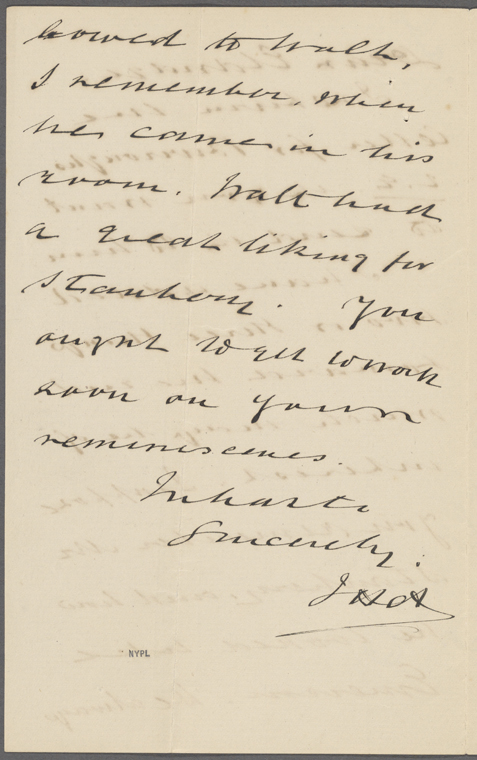 bowed to Walt,
I remember, when
he came in his
room. Walt had
a great liking for
Stanbery. You
ought to get to work
soon on your
reminiscences.
In haste
Sincerely,
J H A
NYPL